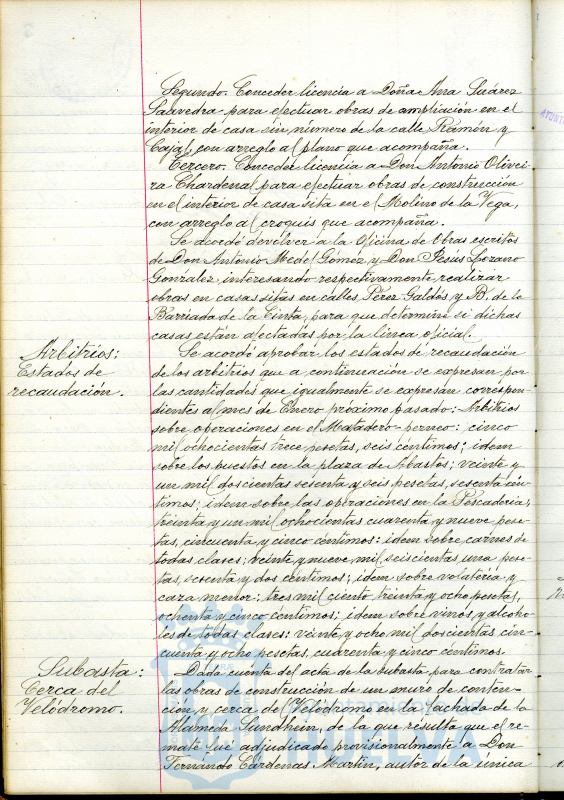 Segundo. Conceder licencia a Doña Ana Suárez
Saavedra para efectuar obras de ampliación en el
interior de casa sin número de la calle Ramón y
Cajal, con arreglo al plano que acompaña.
Tercero. Conceder licencia a Don Antonio Olivei-
ra Chardenal para efectuar obras de construcción
en el interior de casa sita en el Molino de la Vega,
con arreglo al croquis que acompaña.
Se acordó devolver a la Oficina de Obras escritos
de Don Antonio Medel Gómez y Don Jesús Lozano
González, interesando respectivamente realizar
obras en casas sitas en calles Pérez Galdós y B. de la
Barriada de la Cinta, para que determine si dichas
casas están afectadas por la línea oficial.
Arbitrios:
Estados de
recaudación.
Se acordó aprobar los estados de recaudación
de los arbitrios que a continuación se expresan, por
las cantidades que igualmente se expresan correspon-
dientes al mes de Enero próximo pasado:- Arbitrios
sobre operaciones en el Matadero-perneo: cinco
mil ochocientas trece pesetas, seis céntimos; idem
sobre los puestos en la plaza de Abastos; veinte y
un mil doscientas sesenta y seis pesetas, sesenta cén-
timos; idem sobre las operaciones en la Pescadería,
treinta y un mil ochocientas cuarenta y nueve pese-
tas, cincuenta y cinco céntimos; idem sobre carnes de
todas clases: veinte y nueve mil seiscientas una pese-
tas, sesenta y dos céntimos; idem sobre volatería y
caza menor: tres mil ciento treinta y ocho pesetas,
ochenta y cinco céntimos; idem sobre vinos y alcoho-
les de todas clases: veinte y ocho mil doscientas cin-
cuenta y ocho pesetas, cuarenta y cinco céntimos.
Subasta:
Cerca del
Velódromo.
Dada cuenta del acta de la subasta para contratar
las obras de construcción de un muro de conten-
ción y cerca del Velódromo en la fachada de la
Alameda Sundheim, de la que resulta que el re-
mate fué adjudicado provisionalmente a Don
Fernando Cárdenas Martín, autor de la única